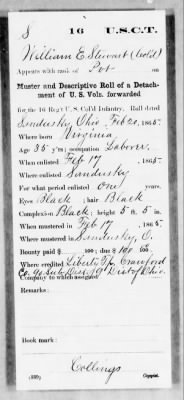 S 16 U.S.C.T.
William E Stewart (Col'd)
Appears with rank of Pvt on
Muster and Descriptive Roll of a Detachment
of U. S. Vols. forwarded
for the 16 Reg't U. S. Col'd Infantry. Roll dated
Sandusky Ohio Feb 20, 1865.
Where born Virginia
Age 35 y'rs; occupation Laborer
When enlisted Feb 17, 1865.
Where enlisted Sandusky
For what period enlisted one years.
Eyes Black; hair Black
Complexion Black; height 5 ft. 5 in.
When mustered in Feb 17, 1865.
Where mustered in Sandusky, O.
Bounty paid $ 100; due $ 100 100
Where credited Liberty Tp. Crawford
Co. 9" Sub Dis. 19" Dist of Ohio.
Company to which assigned
Remarks:
Book mark:
Collings
(339) Copyist.